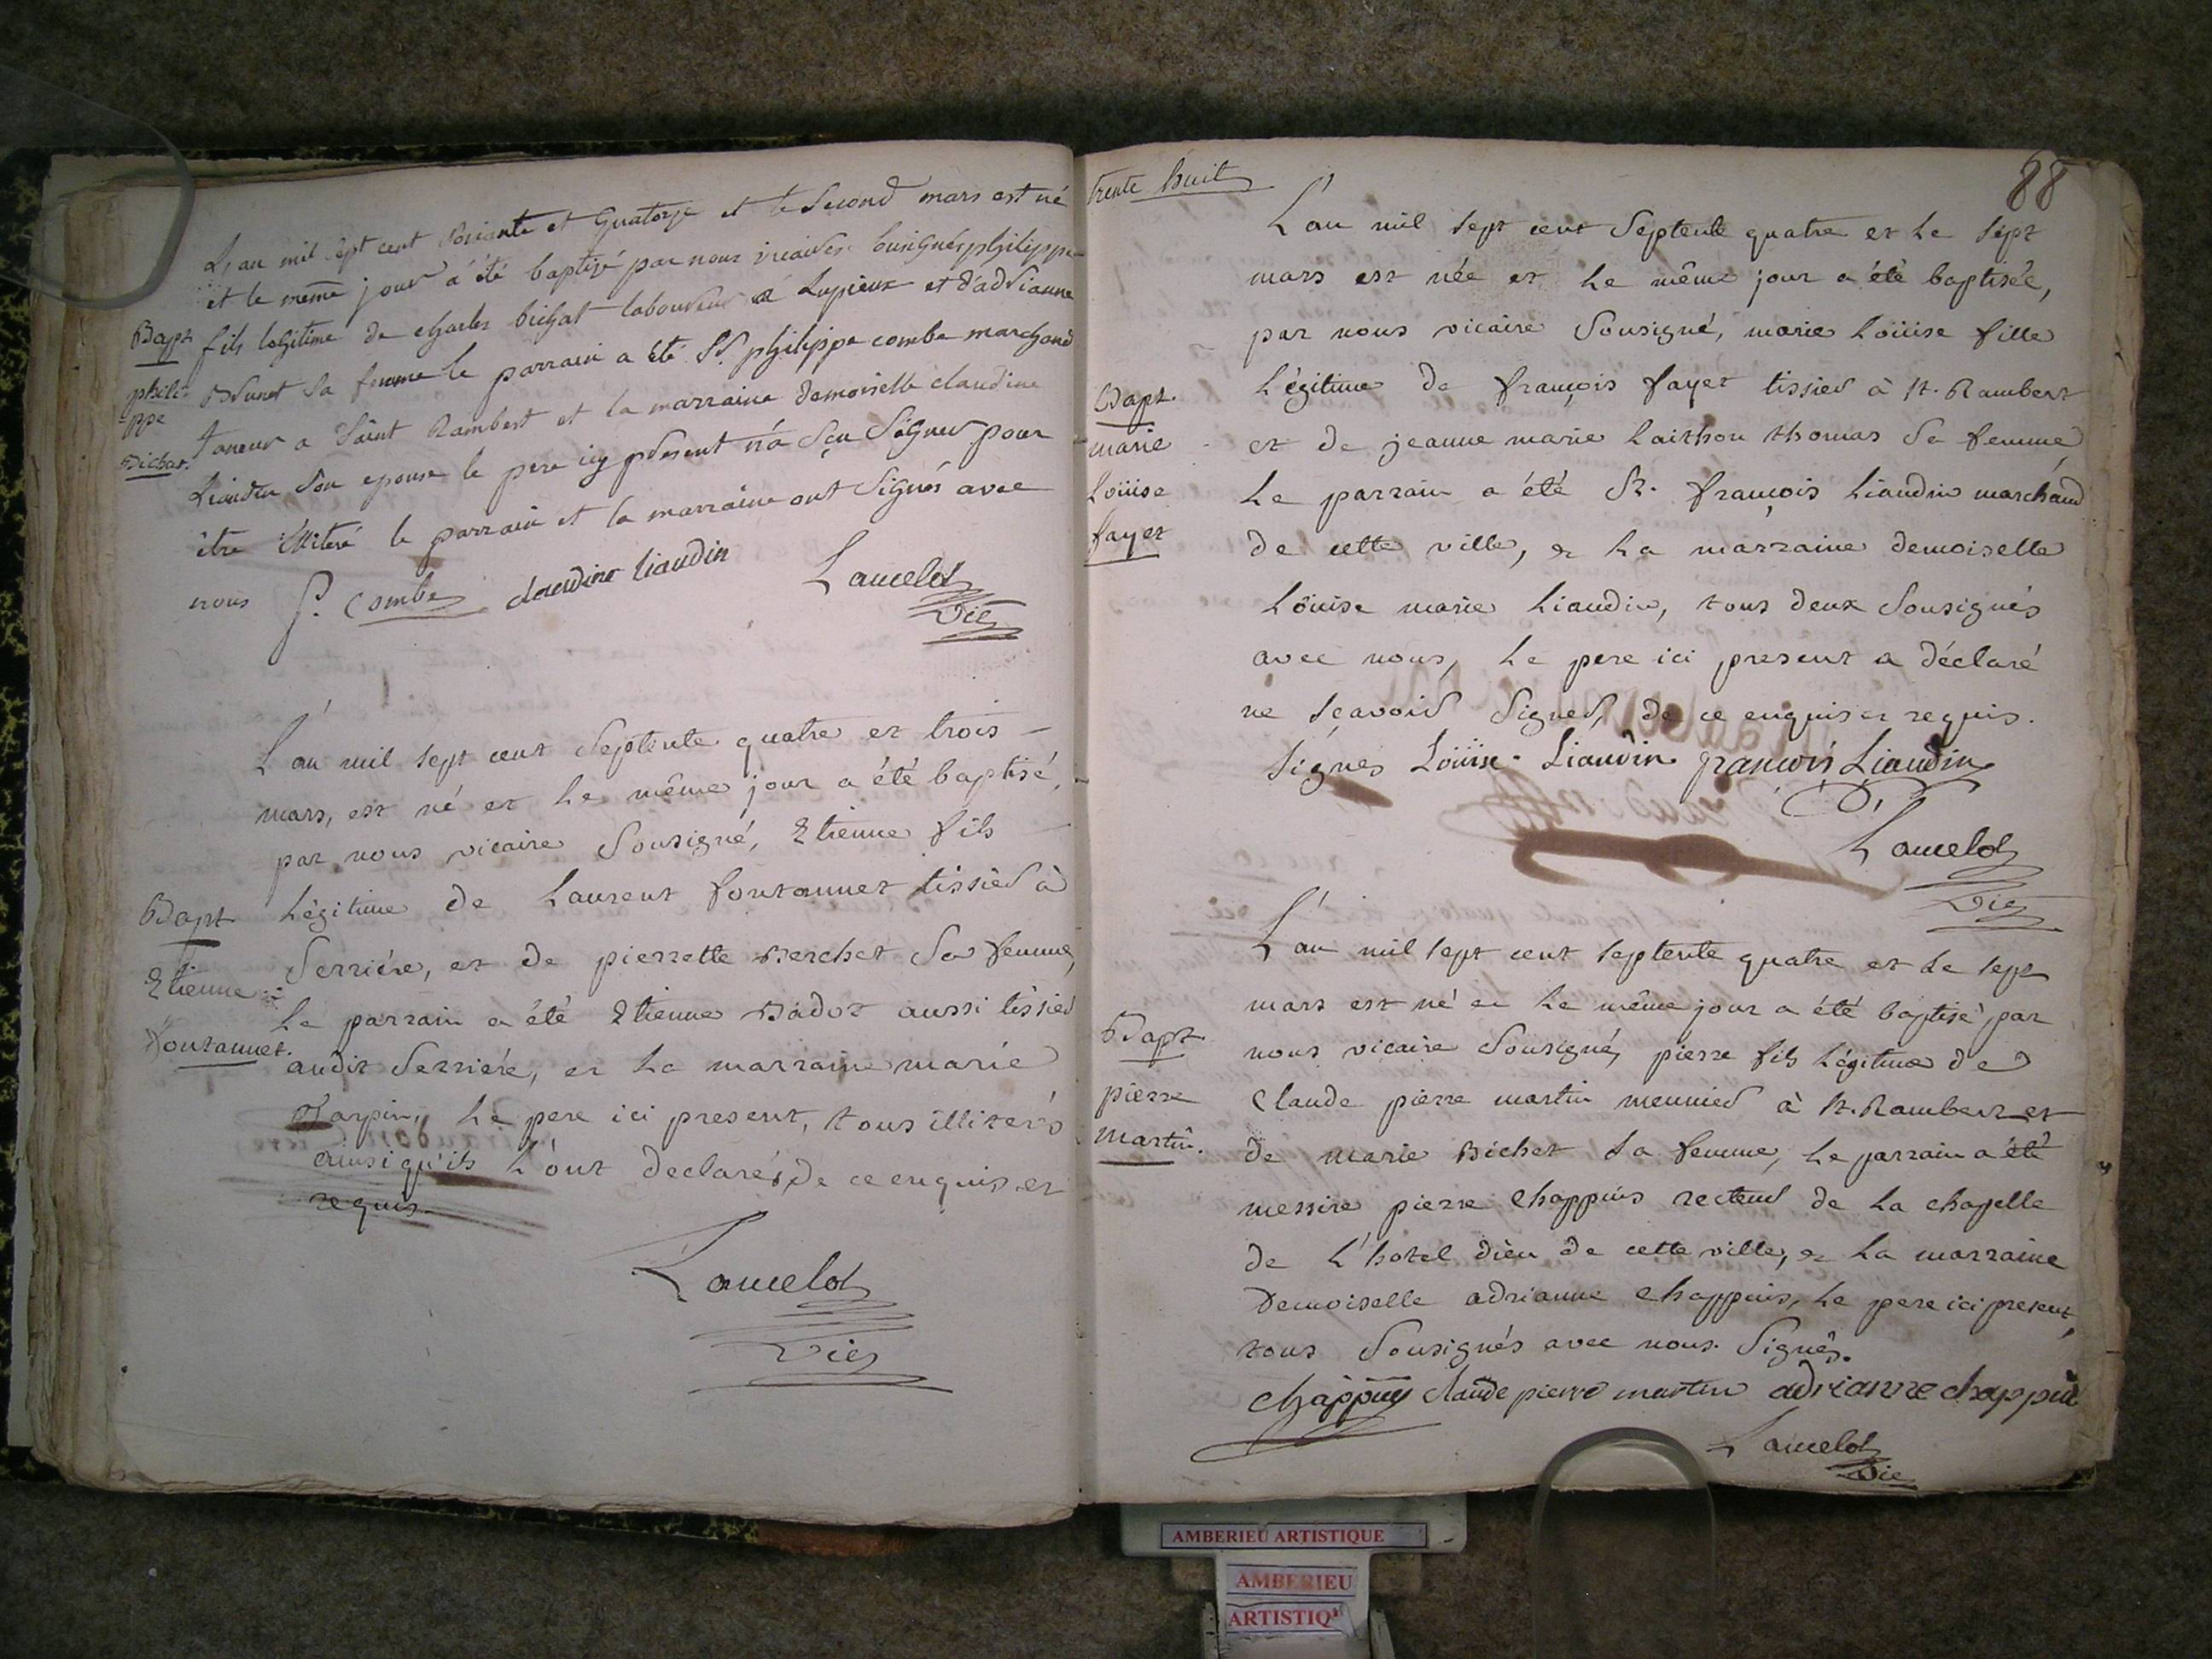 L'an mil sept cent soixante et quatorze et le second mars est né
et le meme jour a été baptizé par nous vicaire susigné philippe
fils legitime de charles bichat laboureur a Lupieux et d'adrianne
Brunet sa femme le parrain a été Sr. philippe combe marchand
Taneur a saint Rambert et la marraine demoiselle claudine
Liaudin son epouse le pere icy present n'a sçu signer pour
être illiteré le parrain et la marraine ont signés avec
nous P. Combe claudine liaudin Lancelot
Vic
Bapt
phili-
-ppe
Bichat.
L'an mil sept cent septente quatre et trois
mars, est né et le même jour a été baptisé,
par nous vicaire sousigné, Etienne fils
légitime de Laurent fontannet tissier à
Serriére, et de pierrette Berchet sa femme,
Le parrain a été Etienne Badot aussi tissier
audit Serriére, et la marraine marie
Harpin, le pere ici present, tous illiterés
ainsi qu'ils l'ont declarés, de ce enquis et
requis.
Lancelot
Vic
Bapt
Etienne
fontannet.
trente huit
88
L'an mil sept cent septente quatre et le sept
mars est née et le même jour a été baptisée,
par nous vicaire sousigné, marie Loüise fille
légitime de françois fayet tissier à st. Rambert
et de jeanne marie Laithon thomas sa femme
Le parrain a été Sr. françois Liaudin marchand
de cette ville, et la marraine demoiselle
Löuise marie Liaudin, tous deux sousignés
avec nous, le pere ici present a déclaré
ne sçavoir signer, de ce enquis et requis.
signés Loüise Liaudin françois Liaudin
Lancelot
Vic
Bapt.
marie
Loüise
fayet
L'an mil sept cent septente quatre et le sept
mars est né et le même jour a été baptisé par
nous vicaire sousigné, pierre fils légitime de
Claude pierre martin meunier à st. Rambert et
de marie Bichet sa femme, le parrain a été
messire pierre chappuis recteur de la chapelle
de l'hotel dieu de cette ville, et la marraine
Demoiselle adrianne chappuis, le pere ici present,
tous sousignés avec nous. signés.
chappuy claude pierre martin adrianne chappui
Lancelot
Vic
Bapt.
pierre
martin.
AMBERIEU ARTISTIQUE
AMBERIEU
ARTISTIQ